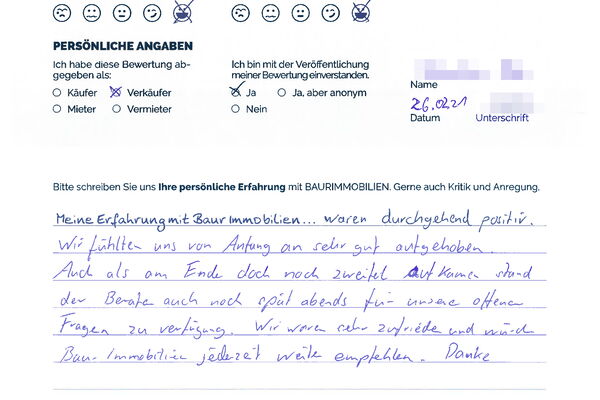 PERSÖNLICHE ANGABEN
Ich habe diese Bewertung ab-
gegeben als:
Käufer Verkäufer
Mieter Vermieter
Ich bin mit der Veröffentlichung
meiner Bewertung einverstanden.
Ja Ja, aber anonym
Nein
Name
26.02.21
Datum Unterschrift
Bitte schreiben Sie uns Ihre persönliche Erfahrung mit BAURIMMOBILIEN. Gerne auch Kritik und Anregung.
Meine Erfahrung mit Baur Immobilien... waren durchgehend positiv.
Wir fühlten uns von Anfang an sehr gut aufgehoben.
Auch als am Ende doch noch zweifel aufkamen stand
der Berater auch noch spät abends für unsere offenen
Fragen zu verfügung. Wir waren sehr zufrieden und würden
Baur Immobilien jederzeit weiter empfehlen. Danke